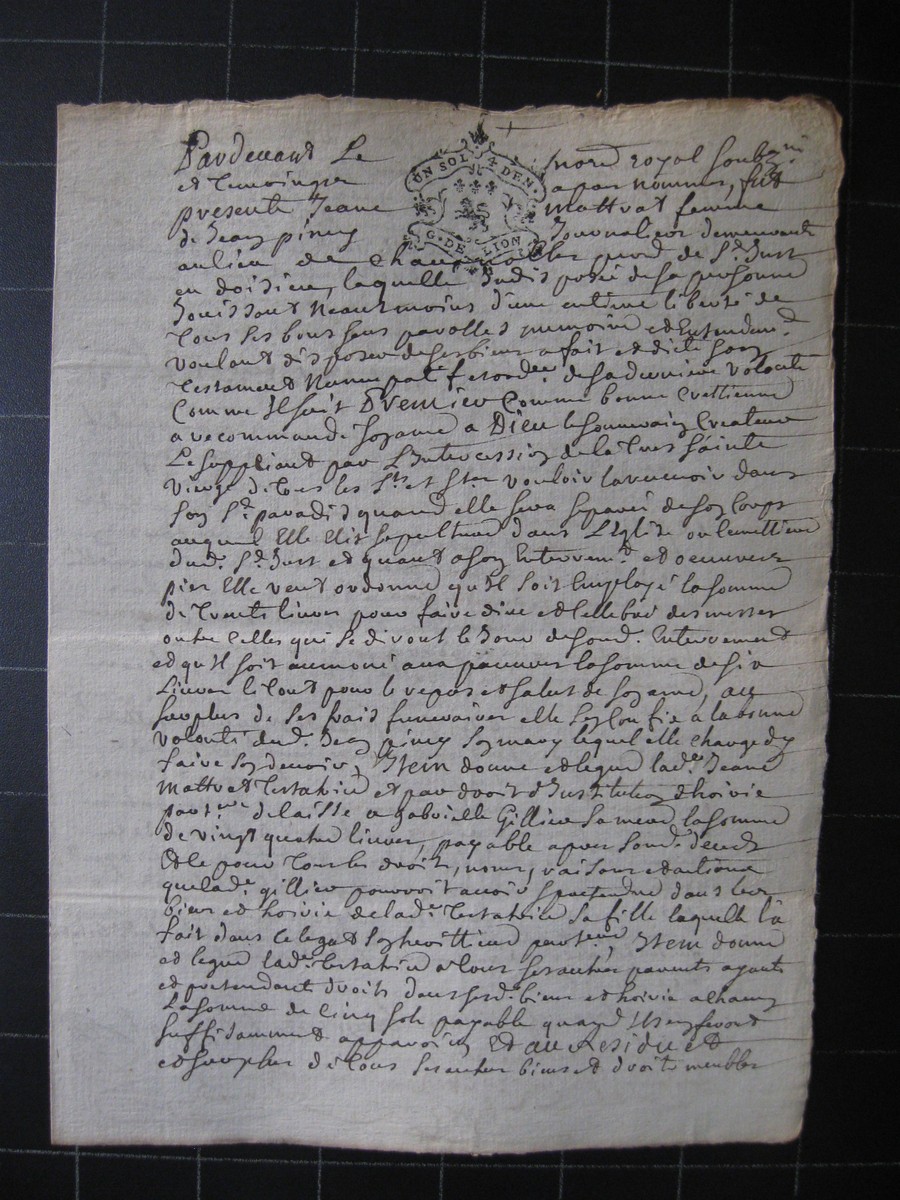 UN SOL 4 DEN.
G. DE LION
Pardevant Le nore royal soubzné
et temoingz a pres nommes, fut
presente Jeane Mattrat femme
de Jean piney Journalier demeurant
au lieu de prud. de St. Just
en doisieu, laquelle Indisposée de sa personne
Jouissant Neautmoins d'une entiere liberté de
Tous ses bons sens parolles memoire et Entendemt
voulant disposer de ses biens a fait et dict son
Testament Nuncupatif et ordce de sa derniere volonté
Comme s'ensuit Premier Comme bonne Crettienne
a recommandé son ame a Dieu le souverain Createur
Le suppliant par L'Intercession de la tres sainte
vierge de tous les Sts et Stes vouloir la recevoir dans
son St. paradis quand elle sera separée de son Corps
auquel Elle Elit sepulture dans L'Eglise ou Cemettiere
dud. St. Just et quant a son Enterremt et oeuvres
pies Elle veut ordonne qu'il soit Employé la somme
de trente livres pour faire dire et Cellebré des messes
outre Celles qui se diront le Jour de sond. Enterrement
et qu'il soit aumoné aux pauvres la somme de six
Livres le tout pour le repos et salut de son ame, au
surplus de ses frais funeraires elle s'en Confie a la bonne
volonté dud. Jean piney son mary lequel elle charge d'y
faire son devoir, Item donne et legue lade. Jeane
Mattrat Testatrice et par droit d'Institution d'hoirie
partre delaisse a Gabrielle Gillier sa mere la somme
de vingt quatre livres, payable apres sond. deceds
Et Ce pour tous les droits, noms, raisons et actions
que lade. gillier pourroit avoir et pretendre dans les
biens et hoirie de lade. Testatrice sa fille laquelle la
fait dans Ce legat son herittiere partre, Item donne
et legue lade. Testatrice a tous ses autres parents ayants
et pretendant droits dans sesd. biens et hoirie a chacun
La somme de Cinq sols payable quand Ils en feront
suffisamment apparoir Et au Residu et
et surplus de tous ses autres biens et droits meubles